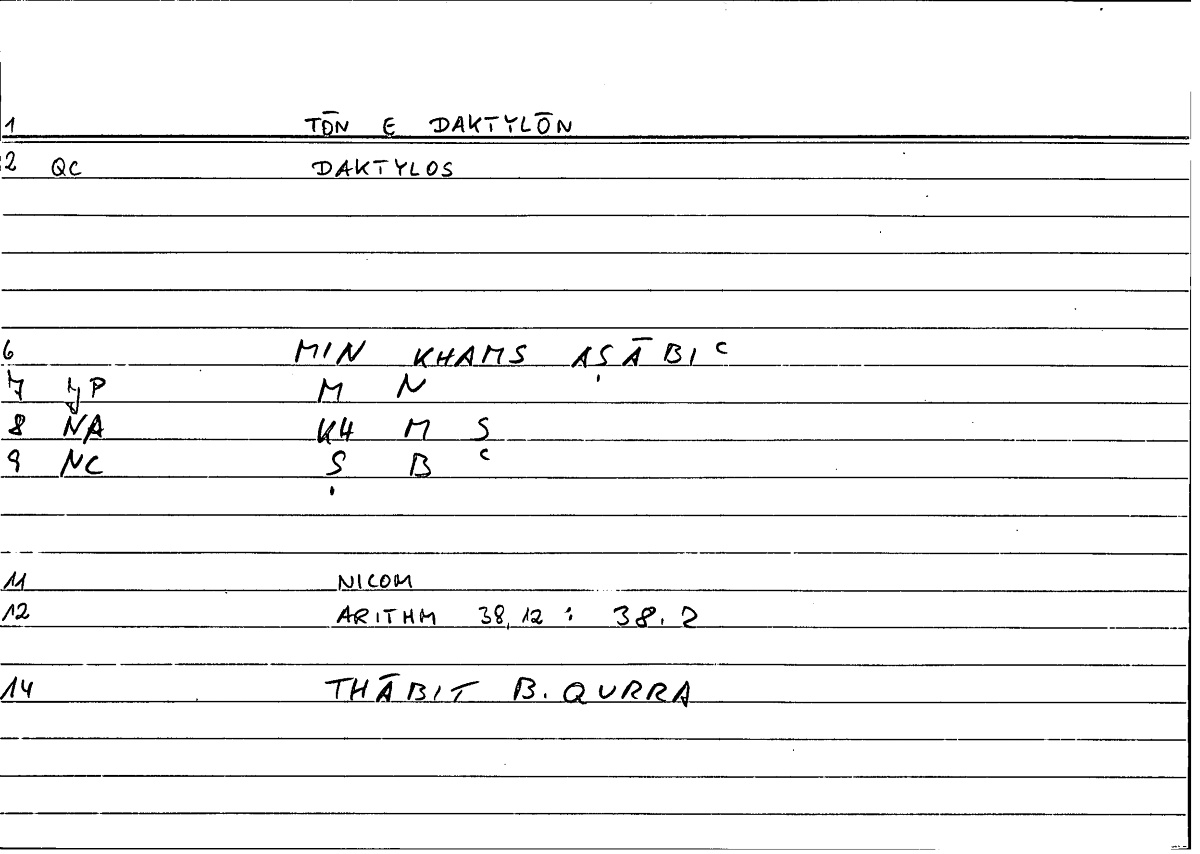 1 TŌN E DAKTYLŌN
2 QC DAKTYLOS
6 MIN KHAMS AṢĀBIʿ
7 JP M N
8 NA KH M S
9 NC Ṣ B ʿ
11 NICOM
12 ARITHM 38,12 : 38.2
14 THĀBIT B. QURRA